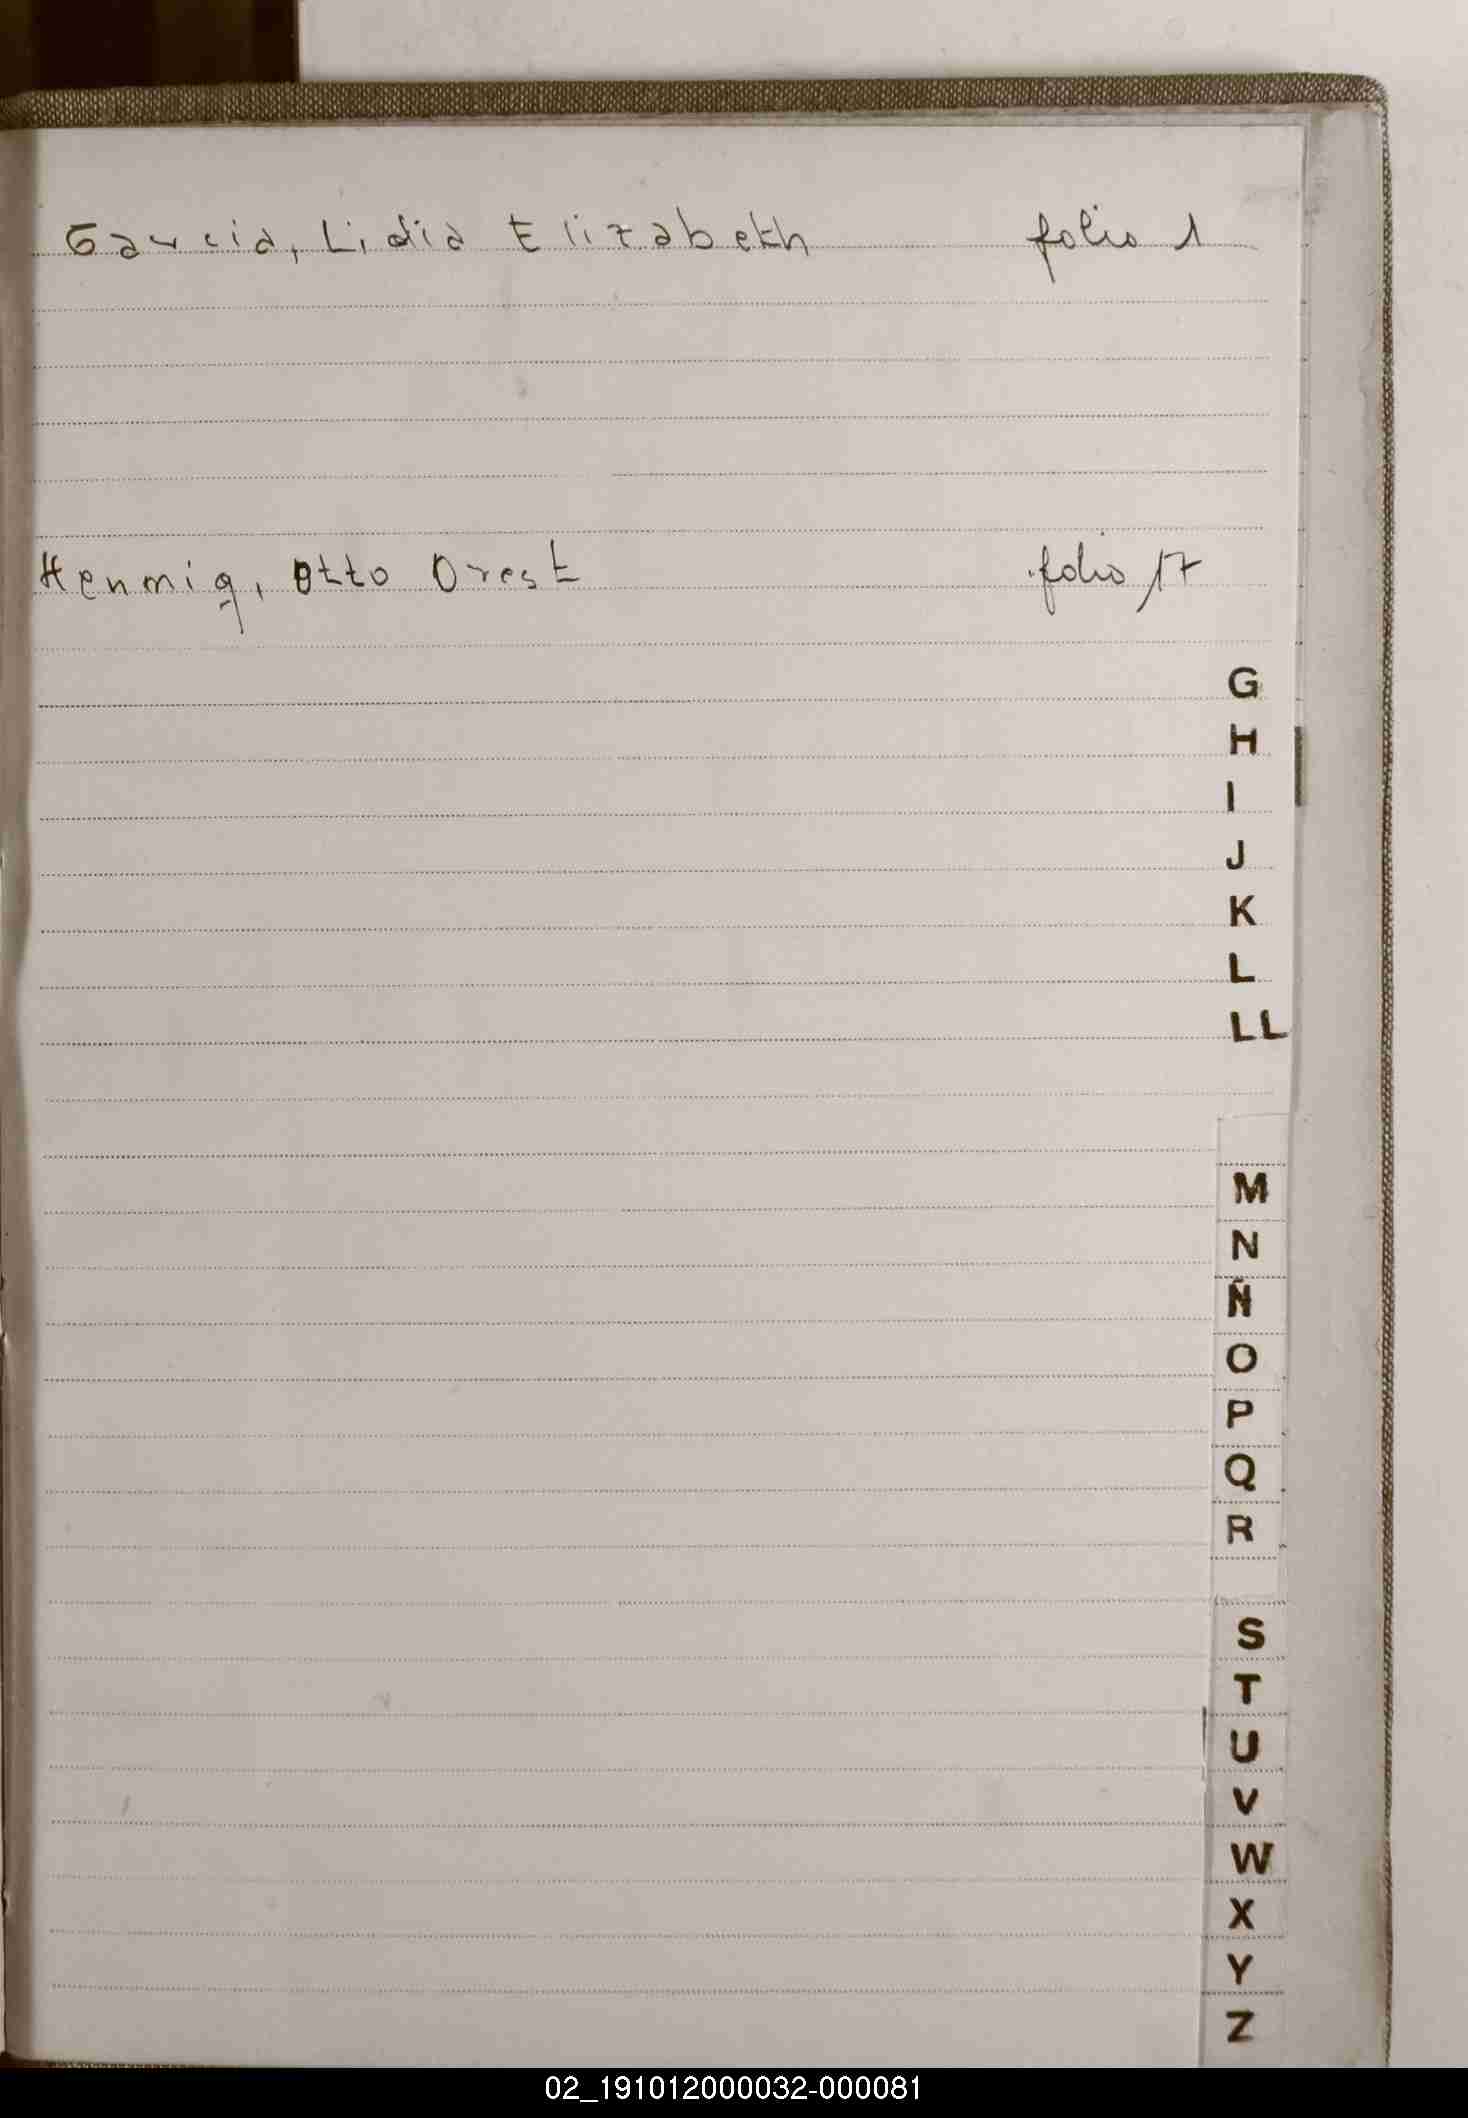 Garcia, Lidia Elizabeth folio 1
Henmig, Otto Orest folio 17
G
H
I
J
K
L
LL
M
N
Ñ
O
P
Q
R
S
T
U
V
W
X
Y
Z
02_191012000032-000081